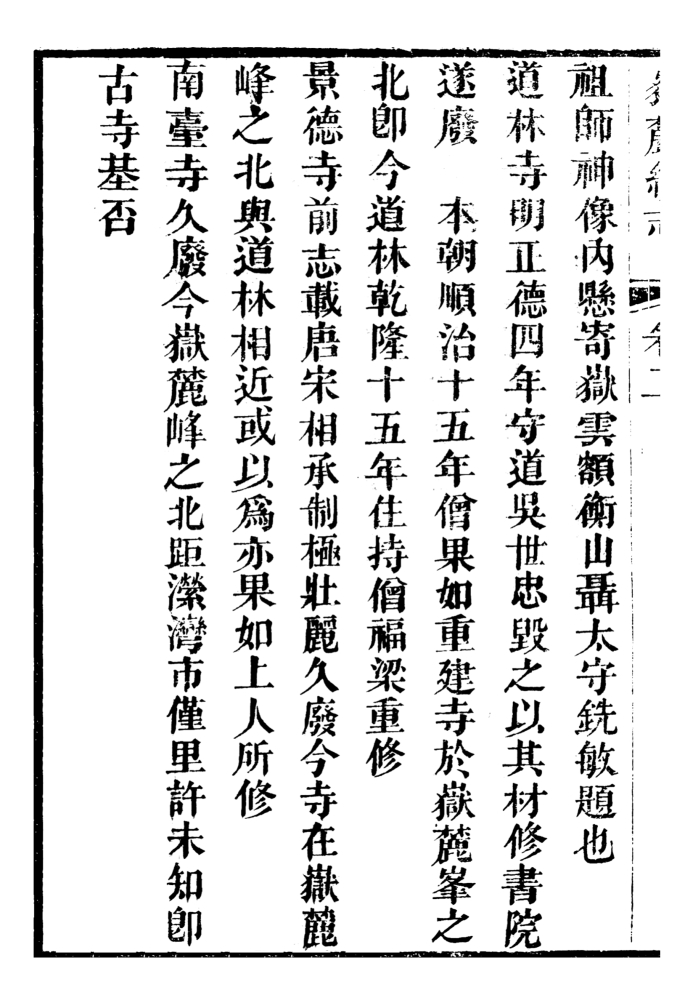 祖師神像內懸寄嶽雲額衡山聶太守銑敏題也
道林寺明正德四年守道吳世忠毀之以其材修書院
遂廢　本朝順治十五年僧果如重建寺於嶽麓峯之
北卽今道林乾隆十五年住持僧福梁重修
景德寺前志載唐宋相承制極壯麗久廢今寺在嶽麓
峰之北與道林相近或以爲亦果如上人所修
南臺寺久廢今嶽麓峰之北距濚灣市僅里許未知卽
古寺基否